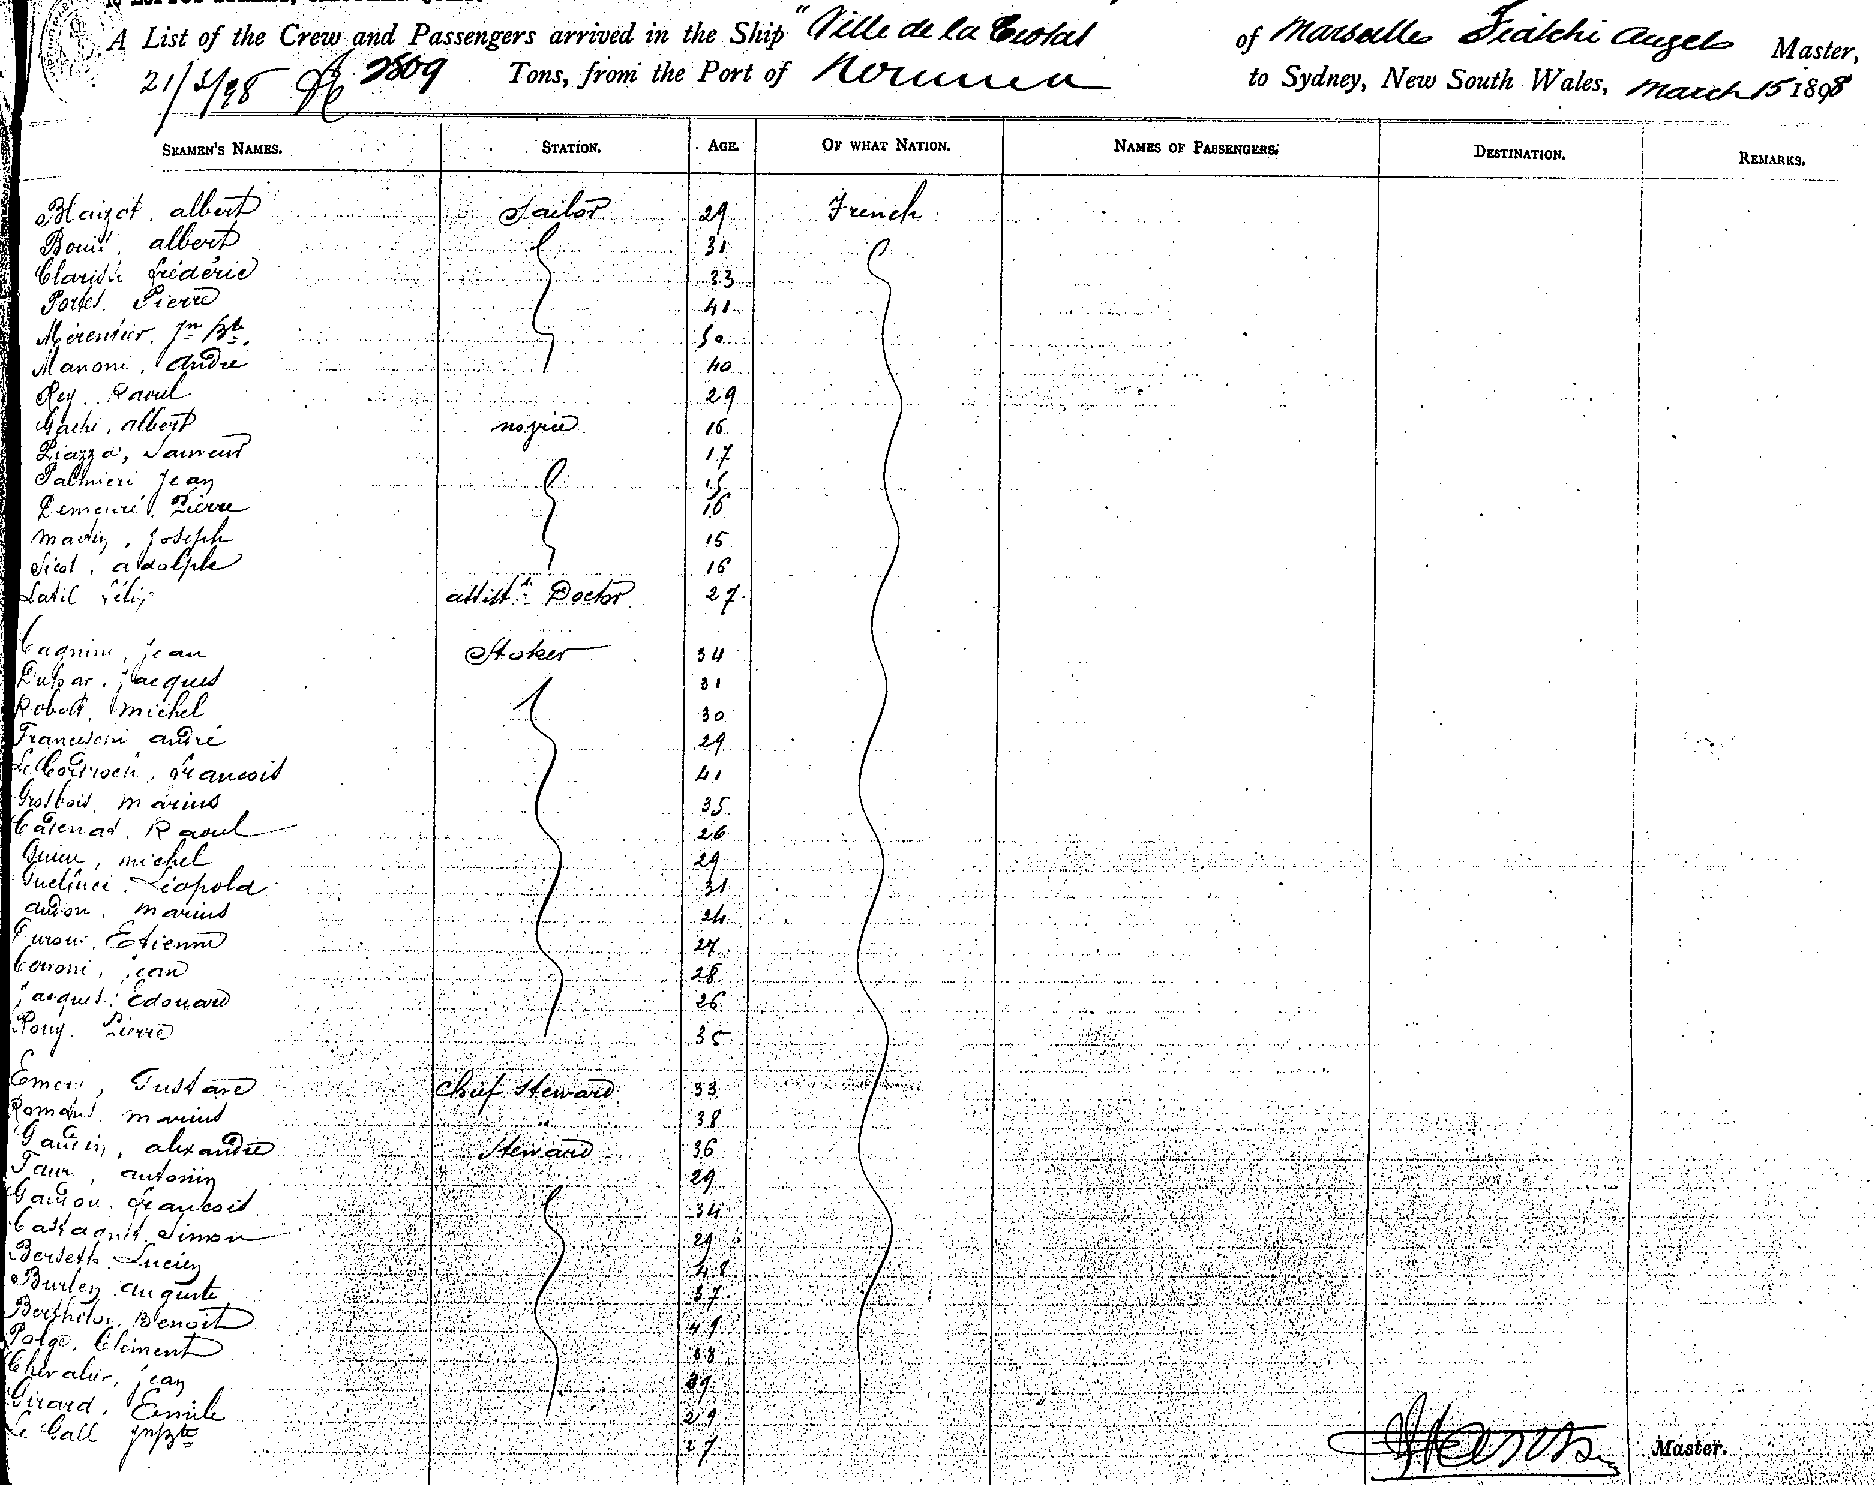 A List of the Crew and Passengers arrived in the Ship "Ville de la Ciotat of Marseilles Fiaschi Angel Master,
21/3/98 2809 Tons, from the Port of Noumea to Sydney, New South Wales, March 15 1898
SEAMEN'S NAMES. STATION. AGE. OF WHAT NATION. NAMES OF PASSENGERS. DESTINATION. REMARKS.
Blaizot. albert Sailor 29 French
Bouis. albert 31
Frédéric 33
Portes. Pierre 41
Mérentier. Jn Bte. 50
Manoni. André 40
Rey. Raoul 29
Gache. albert novice 16
Piazza, Laurent 17
Palmieri Jean 15
Pierre 16
Joseph 15
adolphe 16
Latil Félix assistt Doctor 27
Cagnini, Jean Stoker 34
Jacques 31
Robert. Michel 30
Franceschi andré 29
François 41
Grosbois. Marius 35
Raoul 26
michel 29
Léopold 31
Marius 24
Etienne 27
Jean 28
Jacques. Edouard 26
Pierre 35
Gustave Chief Steward 33
Marius " 38
alexandre Steward 36
antonin 29
François 34
Simon 29
Lucien 48
auguste 37
Benoit 49
Clément 38
Chevalier, Jean 39
Girard. Emile 29
Le Gall Jn Bte 27
Master.